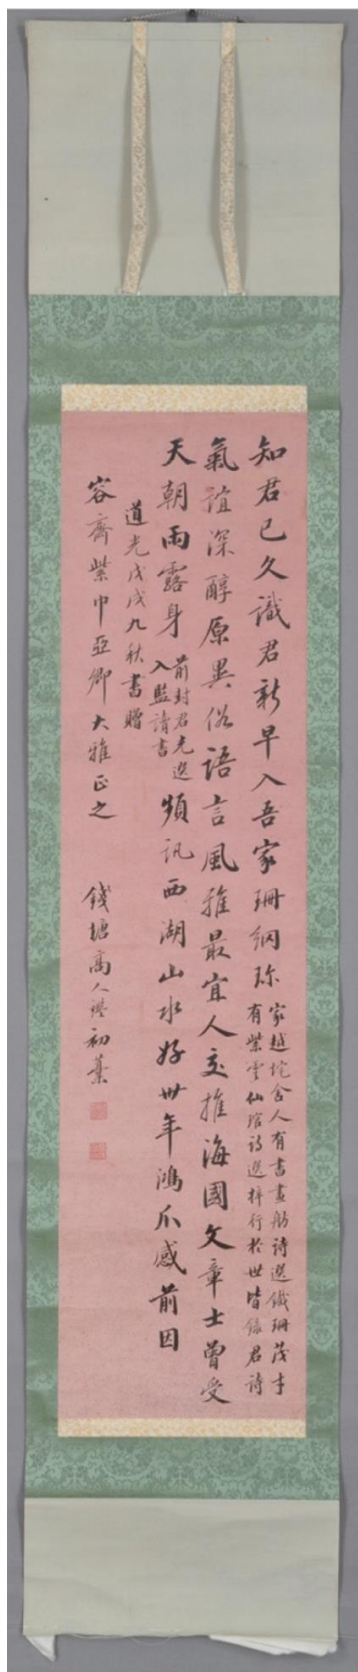 知君已久識君新早入吾家珊網珍家越垞舍人有書畫舫詩選鐵珊茂才
有紫雲仙琯詩選梓行於世皆錄君詩
氣誼深醇原異俗語言風雅最宜人交推海國文章士曾受
天朝雨露身前封君先選
入監讀書頻訊西湖山水好卅年鴻爪感前因
道光戊戌九秋書贈
容齋紫巾亞卿大雅正之
錢塘高人鑑初藁